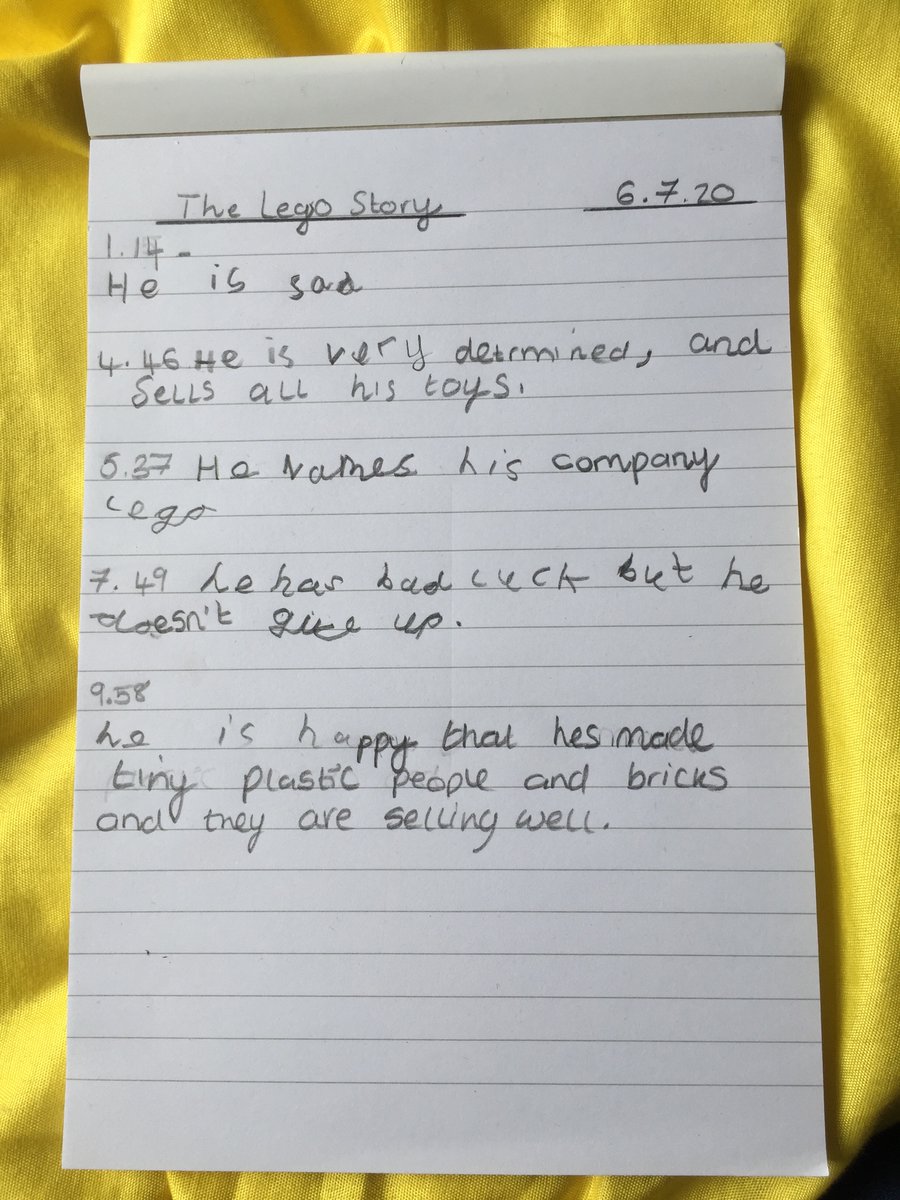 The Lego Story 6.7.20
1.14 -
He is sad
4.46 He is very detrmined, and
sells all his toys.
5.37 He Names his company
Lego
7.49 he has bad luck but he
doesn't give up.
9.58
he is happy that hes made
tiny plastic people and bricks
and they are selling well.